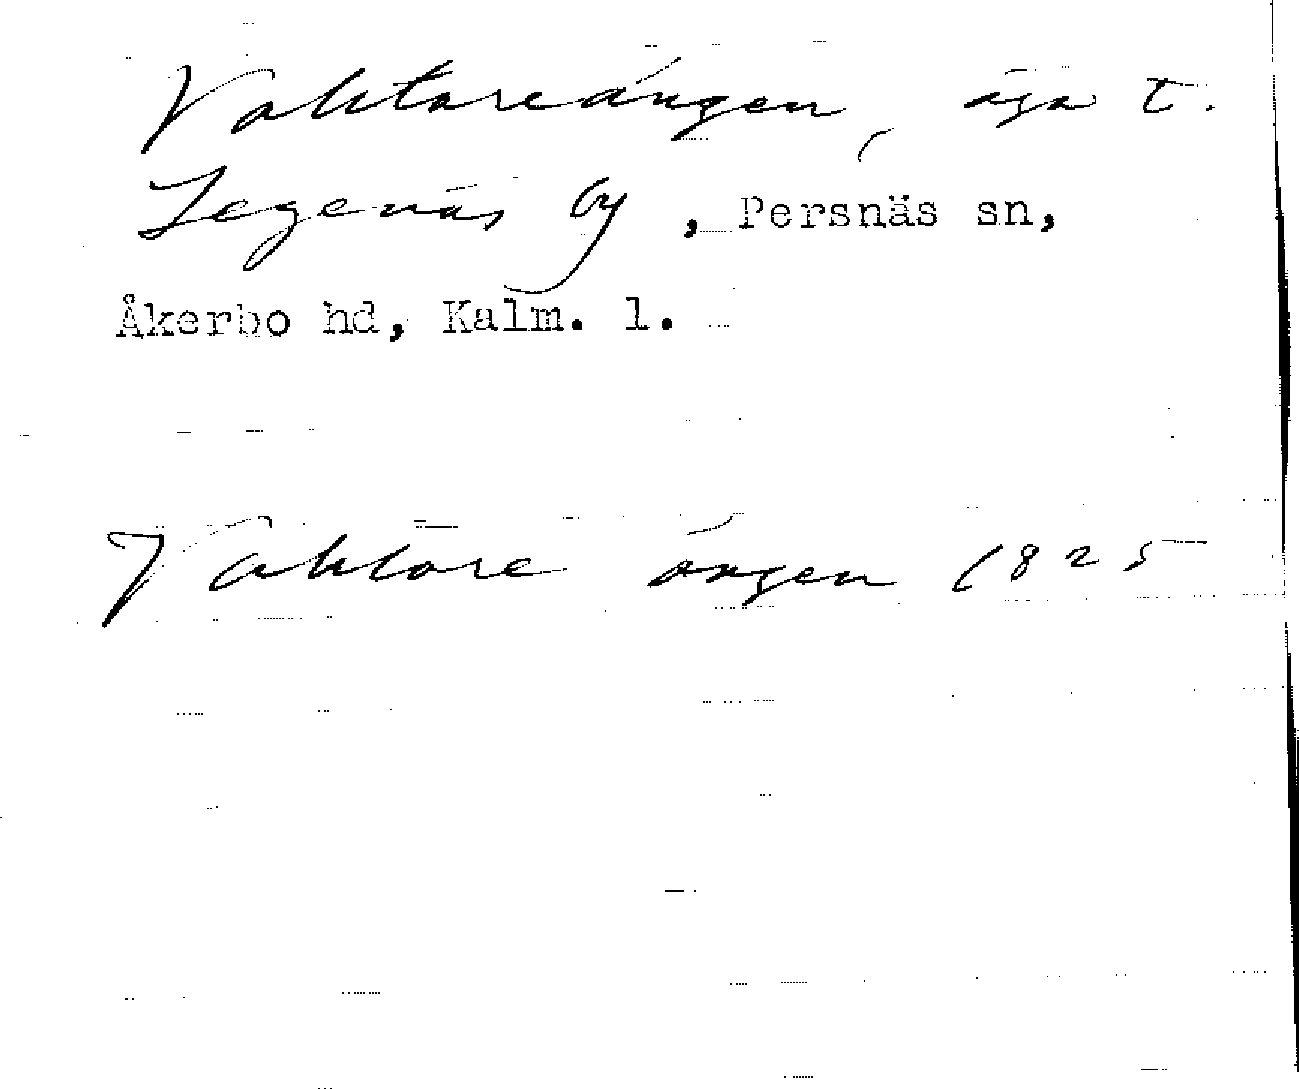 Vaktareängen, äga t.
Legenäs by, Persnäs sn,
Åkerbo hd, Kalm. l.
Vaktare ängen 1825